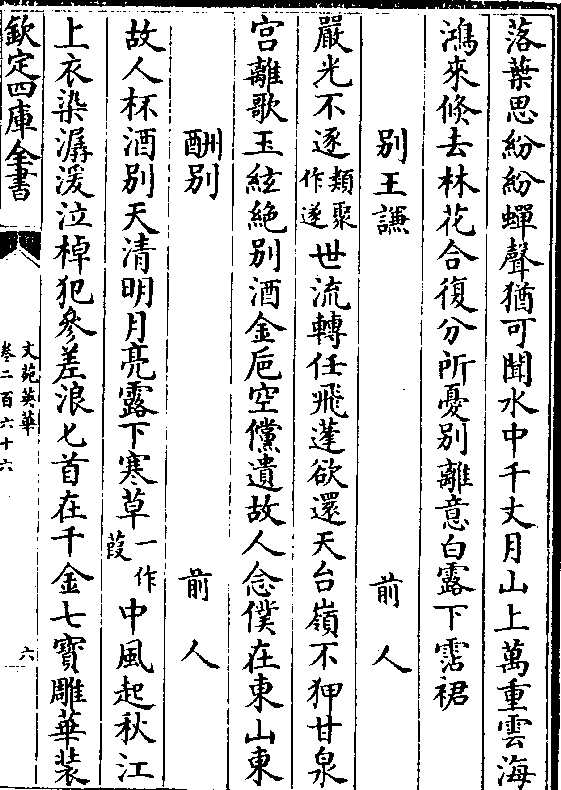 落葉思紛紛蟬聲猶可聞水中千丈月山上萬重雲海
鴻來倐去林花合復分所憂別離意白露下霑裙
別王謙
前人
嚴光不逐類聚作遂世流轉任飛蓬欲還天台嶺不狎甘泉
宫離歌玉絃絶别酒金巵空儻遺故人念僕在東山東
酬别
前人
故人杯酒别天清明月亮露下寒草一作葭中風起秋江
上衣染潺湲泣棹犯參差浪匕首在千金七寳雕華装
欽定四庫全書
文苑英華
卷二百六十六
六